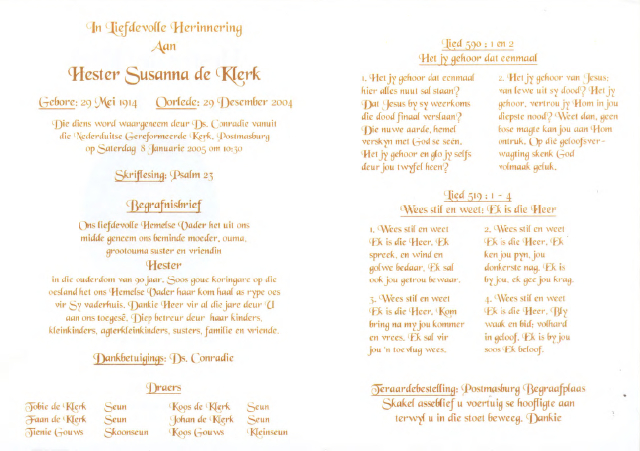 In Liefdevolle Herinnering
Aan
Hester Susanna de Klerk
Gebore: 29 Mei 1914 Oorlede: 29 Desember 2004
Die diens word waargeneem deur Ds. Conradie vanuit
die Nederduitse Gereformeerde Kerk, Postmasburg
op Saterdag 8 Januarie 2005 om 10:30
Skriflesing: Psalm 23
Begrafnisbrief
Ons liefdevolle Hemelse Vader het uit ons
midde geneem ons beminde moeder, ouma,
grootouma suster en vriendin
Hester
in die ouderdom van 90 jaar. Soos goue koringare op die
oesland het ons Hemelse Vader haar kom haal as rype oes
vir Sy vaderhuis. Dankie Heer vir al die jare deur U
aan ons toegesê. Diep betreur deur haar kinders,
kleinkinders, agterkleinkinders, susters, familie en vriende.
Dankbetuigings: Ds. Conradie
Draers
Tobie de Klerk Seun Koos de Klerk Seun
Faan de Klerk Seun Johan de Klerk Seun
Tienie Gouws Skoonseun Koos Gouws Kleinseun
Lied 590 : 1 en 2
Het jy gehoor dat eenmaal
1. Het jy gehoor dat eenmaal
hier alles nuut sal staan?
Dat Jesus by sy weerkoms
die dood finaal verslaan?
Die nuwe aarde, hemel
verskyn met God se seën.
Het jy gehoor en glo jy selfs
deur jou twyfel heen?
2. Het jy gehoor van Jesus;
van lewe uit sy dood? Het jy
gehoor, vertrou jy Hom in jou
diepste nood? Weet dan, geen
bose magte kan jou aan Hom
ontruk. Op die geloofsver-
wagting skenk God
volmaak geluk.
Lied 519 : 1 - 4
Wees stil en weet: Ek is die Heer
1. Wees stil en weet
Ek is die Heer. Ek
spreek, en wind en
golwe bedaar. Ek sal
ook jou getrou bewaar.
2. Wees stil en weet
Ek is die Heer. Ek
ken jou pyn, jou
donkerste nag. Ek is
by jou, ek gee jou krag.
3. Wees stil en weet
Ek is die Heer. Kom
bring na my jou kommer
en vrees. Ek sal vir
jou 'n toevlug wees.
4. Wees stil en weet
Ek is die Heer. Bly
waak en bid; volhard
in geloof. Ek is by jou
soos Ek beloof.
Teraardebestelling: Postmasburg Begraafplaas
Skakel asseblief u voertuig se hooflígte aan
terwyl u in die stoet beweeg. Dankie